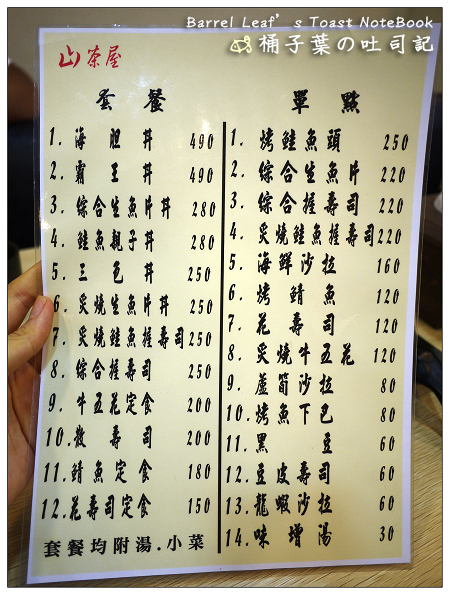 Barrel Leaf's Toast NoteBook
桶子葉の吐司記
山茶屋
套餐
1. 海胆丼 490
2. 霸王丼 490
3. 綜合生魚片丼 280
4. 鮭魚親子丼 280
5. 三色丼 250
6. 炙燒生魚片丼 250
7. 炙燒鮭魚握壽司 250
8. 綜合握壽司 250
9. 牛五花定食 200
10. 散壽司 200
11. 鯖魚定食 180
12. 花壽司定食 150
套餐均附湯.小菜
單點
1. 烤鮭魚頭 250
2. 綜合生魚片 220
3. 綜合握壽司 220
4. 炙燒鮭魚握壽司 220
5. 海鮮沙拉 160
6. 烤鯖魚 120
7. 花壽司 120
8. 炙燒牛五花 120
9. 蘆筍沙拉 80
10. 烤魚下巴 80
11. 黑豆 60
12. 豆皮壽司 60
13. 龍蝦沙拉 60
14. 味增湯 30